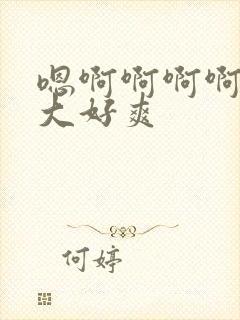 嗯啊啊啊啊
大好爽
何婷